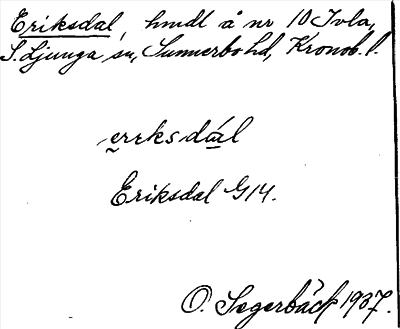 Eriksdal, hmdl å nr 10 Tvla,
S. Ljunga sn, Sunnerbo hd, Kronob. l.
errksdál
Eriksdal G14.
O. Segerbäck 1937.